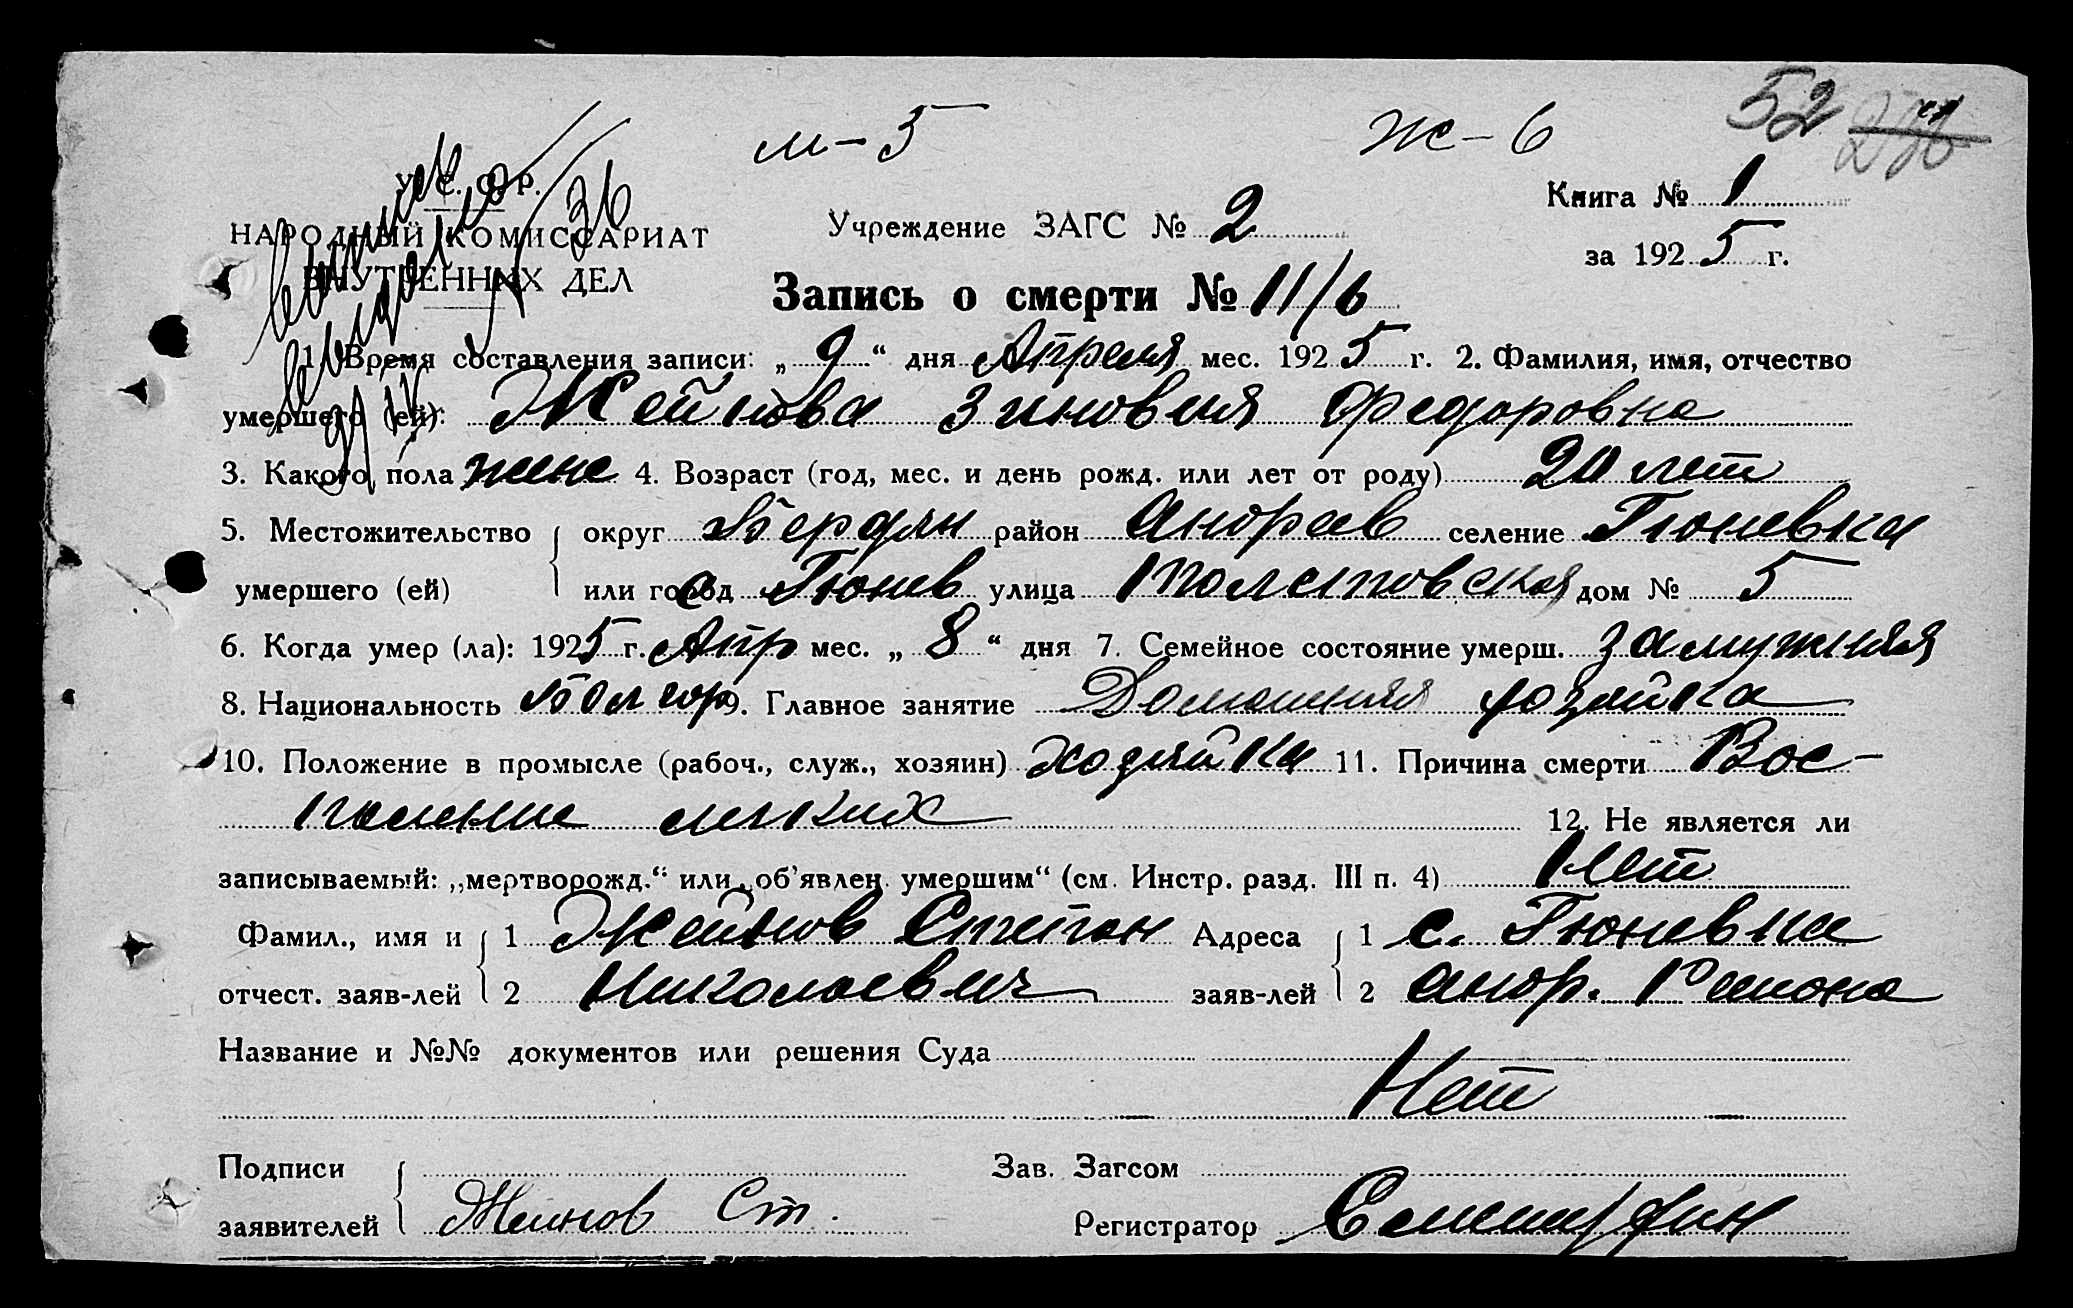 м – 5 Ж – 6 52
У. С. С. Р.
НАРОДНЫЙ КОМИССАРИАТ
ВНУТРЕННИХ ДЕЛ
Учреждение ЗАГС № 2
Книга № 1
за 1925 г.
Запись о смерти № 11/6
1. Время составления записи: „ 9 “ дня Апреля мес. 1925 г. 2. Фамилия, имя, отчество
умершего (ей): Жейнова Зиновия Федоровна
3. Какого пола женс 4. Возраст (год, мес. и день рожд. или лет от роду) 20 лет
5. Местожительство округ Бердян район Андреев селение Гюневка
умершего (ей) или город с Гюнев улица дом № 5
6. Когда умер (ла): 1925 г. Апр мес. „ 8 “ дня 7. Семейное состояние умерш. замужняя
8. Национальность Болгар 9. Главное занятие Домашняя хозяйка
10. Положение в промысле (рабоч., служ., хозяин) хозяйка 11. Причина смерти Вос-
паление легких 12. Не является ли
записываемый: „мертворожд.“ или „об’явлен. умершим“ (см. Инстр. разд. III п. 4) Нет
Фамил., имя и 1 Жейнов Степан Адреса 1 с. Гюневка
отчест. заяв-лей 2 Николаевич заяв-лей 2 Андр. Района
Название и №№ документов или решения Суда
Нет
Подписи Зав. Загсом
заявителей Жейнов Ст. Регистратор